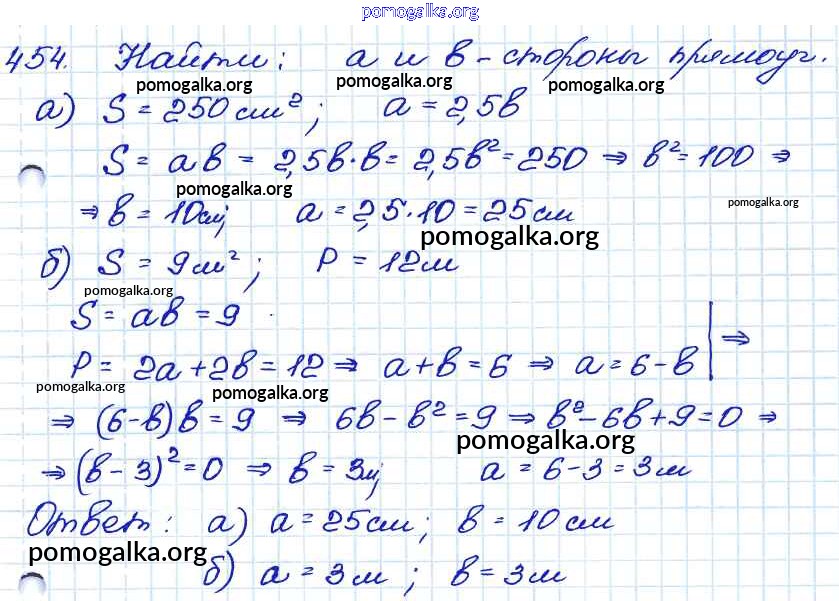 pomogalka.org
454. Найти: a и b - стороны прямоуг.
pomogalka.org pomogalka.org pomogalka.org
а) S = 250 см²; a = 2,5b
S = ab = 2,5b·b = 2,5b² = 250 ⇒ b² = 100 ⇒
pomogalka.org pomogalka.org
⇒ b = 10см; a = 2,5·10 = 25 см
pomogalka.org
б) S = 9 м²; P = 12м
pomogalka.org
S = ab = 9
P = 2a + 2b = 12 ⇒ a + b = 6 ⇒ a = 6 - b | ⇒
pomogalka.org pomogalka.org
⇒ (6 - b)b = 9 ⇒ 6b - b² = 9 ⇒ b² - 6b + 9 = 0 ⇒
pomogalka.org
⇒ (b - 3)² = 0 ⇒ b = 3м; a = 6 - 3 = 3 м
Ответ: а) a = 25 см; b = 10 см
pomogalka.org
б) a = 3 м; b = 3 м